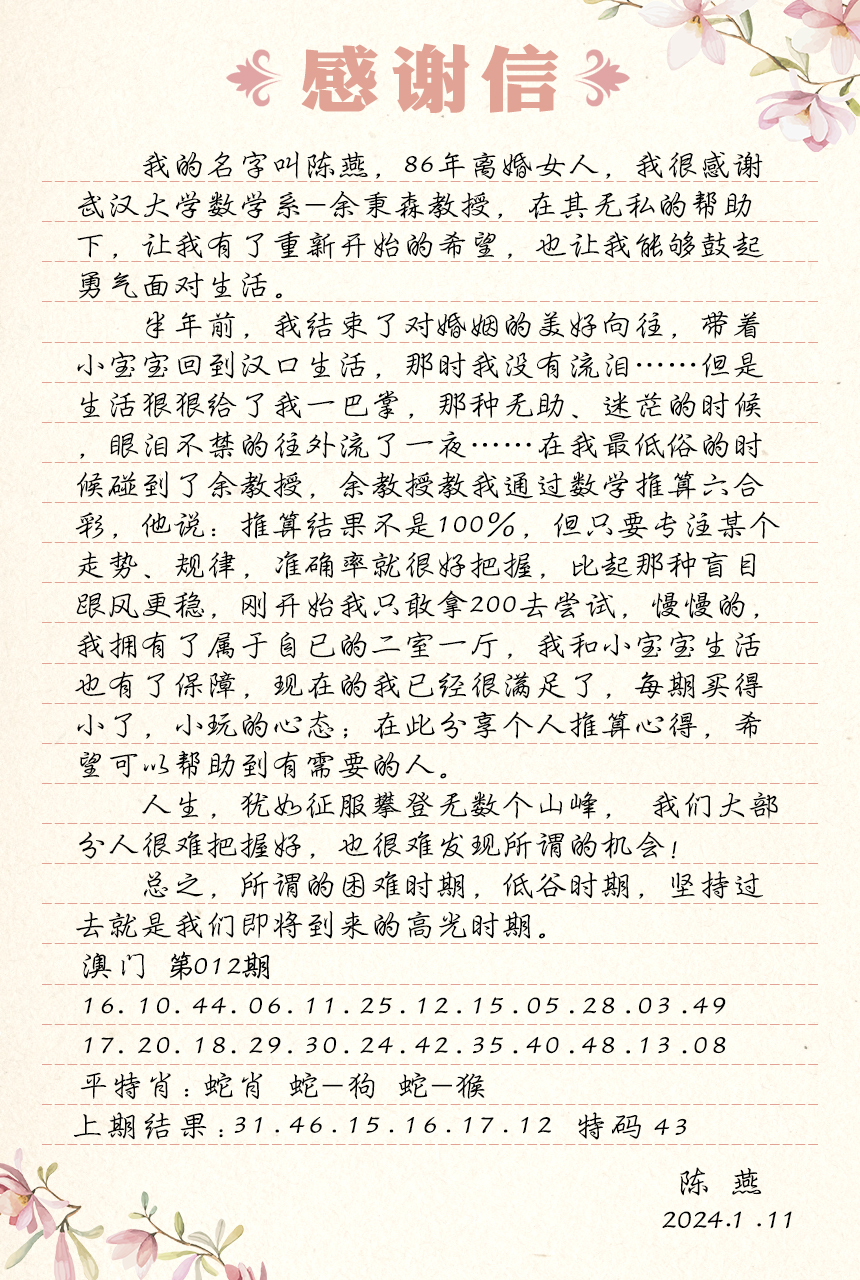 感谢信
我的名字叫陈燕，86年离婚女人，我很感谢
武汉大学数学系—余秉森教授，在其无私的帮助
下，让我有了重新开始的希望，也让我能够鼓起
勇气面对生活。
半年前，我结束了对婚姻的美好向往，带着
小宝宝回到汉口生活，那时我没有流泪……但是
生活狠狠给了我一巴掌，那种无助、迷茫的时候
，眼泪不禁的往外流了一夜……在我最低俗的时
候碰到了余教授，余教授教我通过数学推算六合
彩，他说：推算结果不是100%，但只要专注某个
走势、规律，准确率就很好把握，比起那种盲目
跟风更稳，刚开始我只敢拿200去尝试，慢慢的，
我拥有了属于自已的二室一厅，我和小宝宝生活
也有了保障，现在的我已经很满足了，每期买得
小了，小玩的心态；在此分享个人推算心得，希
望可以帮助到有需要的人。
人生，犹如征服攀登无数个山峰， 我们大部
分人很难把握好，也很难发现所谓的机会！
总之，所谓的困难时期，低谷时期，坚持过
去就是我们即将到来的高光时期。
澳门 第012期
16.10.44.06.11.25.12.15.05.28.03.49
17.20.18.29.30.24.42.35.40.48.13.08
平特肖：蛇肖 蛇—狗 蛇—猴
上期结果：31.46.15.16.17.12 特码 43
陈 燕
2024.1.11